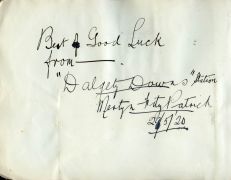 Best of Good Luck
from ———.
"Dalgety Downs" Station
Martyn FitzPatrick
29/5/20